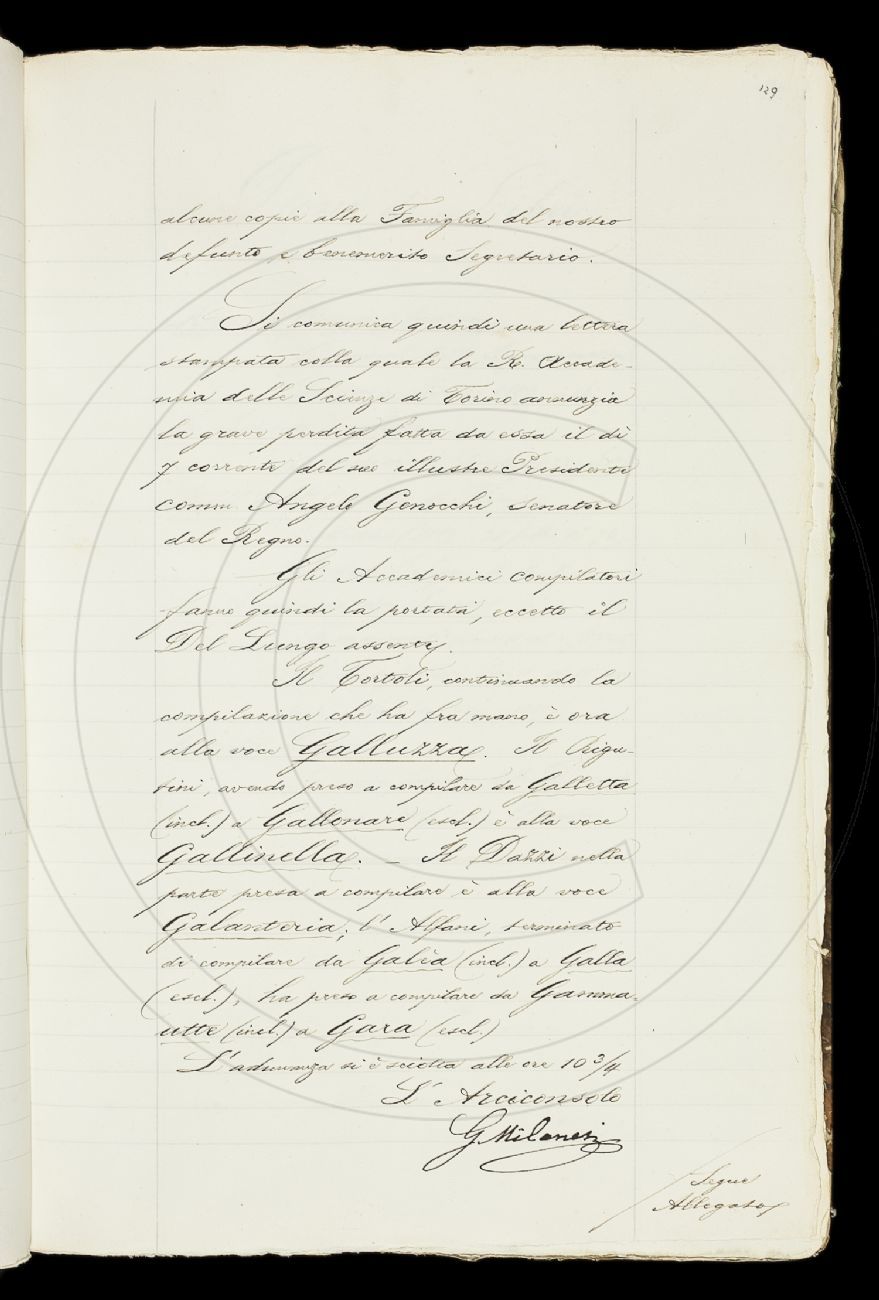 129
alcune copie alla Famiglia del nostro
defunto e benemerito Segretario.
Si comunica quindi una lettera
stampata colla quale la R. Accade-
mia delle Scienze di Torino annunzia
la grave perdita fatta da essa il dì
7 corrente del suo illustre Presidente
comm. Angelo Genocchi, senatore
del Regno.
Gli Accademici compilatori
fanno quindi la portata, eccetto il
Del Lungo assente.
Il Tortoli, continuando la
compilazione che ha fra mano, è ora
alla voce Galluzza. Il Rigu-
tini, avendo preso a compilare da Galletta
(incl.) a Gallonare (escl.) è alla voce
Gallinella. – Il Dazzi nella
parte presa a compilare è alla voce
Galanteria; l'Alfani, terminato
di compilare da Galèa (incl.) a Galla
(escl.), ha preso a compilare da Gamma-
utte (incl.) a Gara (escl.)
L'adunanza si è sciolta alle ore 10 3/4
L'Arciconsolo
G. Milanesi
Segue
Allegato